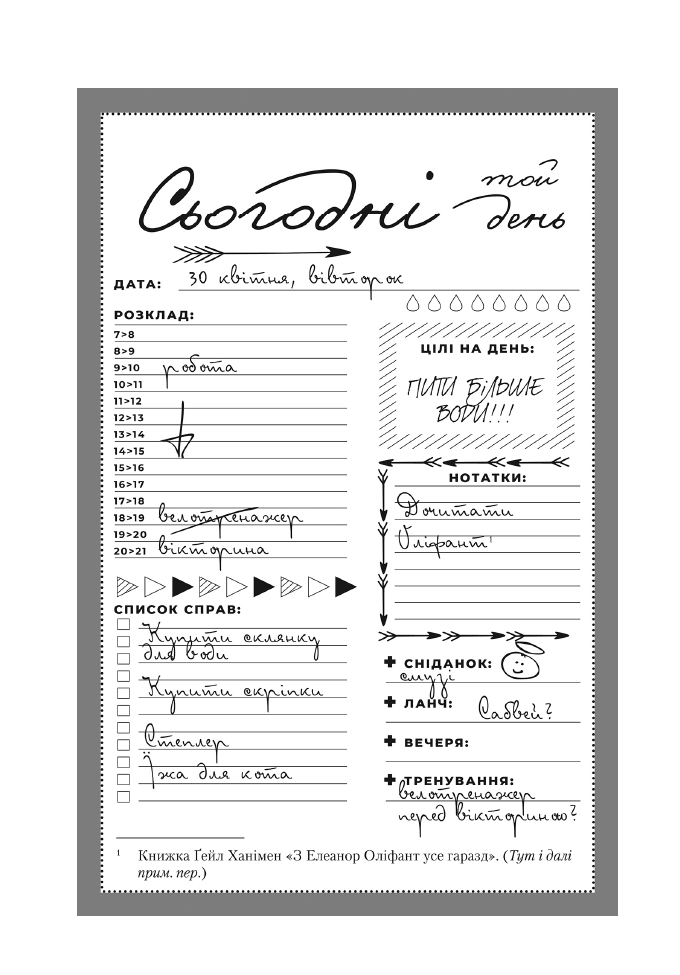 Сьогодні той
день
ДАТА: 30 квітня, вівторок
РОЗКЛАД:
7>8
8>9
9>10 робота
10>11
11>12
12>13
13>14
14>15
15>16
16>17
17>18
18>19 велотренажер
19>20
20>21 вікторина
СПИСОК СПРАВ:
Купити склянку
для води
Купити скріпки
Степлер
Їжа для кота
ЦІЛІ НА ДЕНЬ:
ПИТИ БІЛЬШЕ
ВОДИ!!!
НОТАТКИ:
Дочитати
Оліфант¹
СНІДАНОК:
смузі
ЛАНЧ: Сабвей?
ВЕЧЕРЯ:
ТРЕНУВАННЯ:
велотренажер
перед вікториною?
¹ Книжка Ґейл Ханімен «З Елеанор Оліфант усе гаразд». (Тут і далі
прим. пер.)